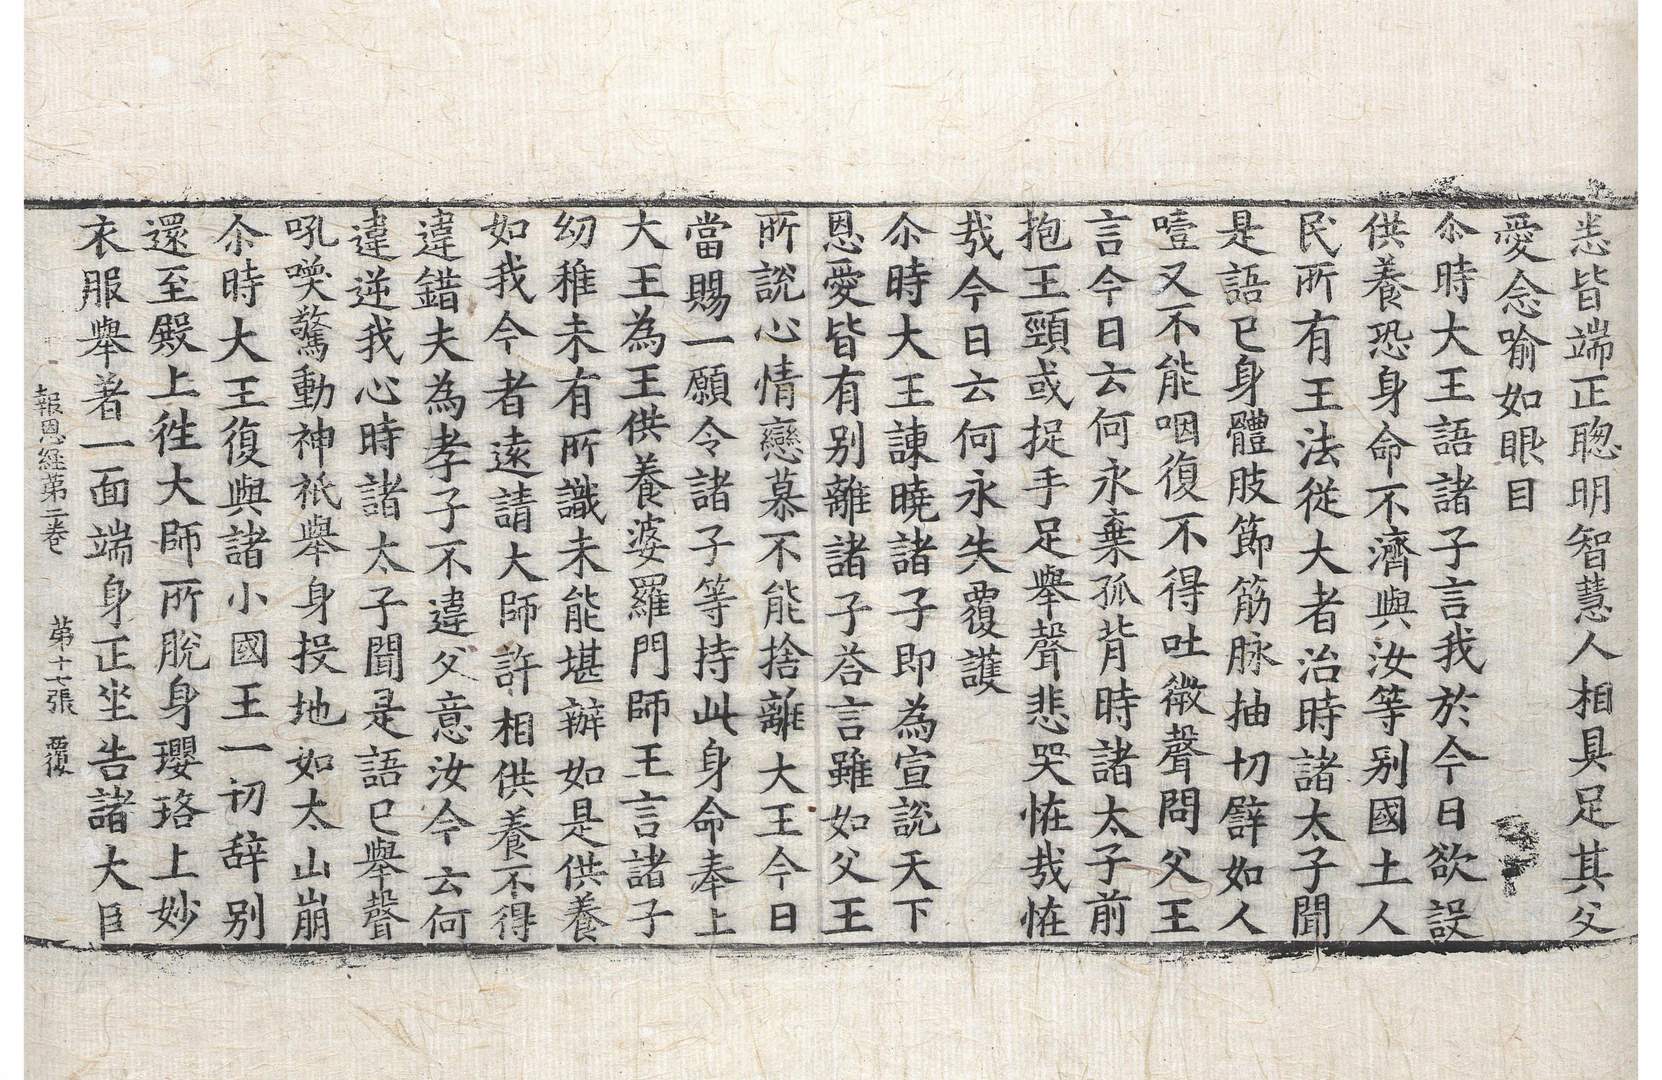 恙皆端正聦明智慧人相具足其父
愛念喻如眼目
尒時大王語諸子言我於今日欲設
供養恐身命不濟與汝等别國土人
民所有王法從大者治時諸太子聞
是語已身體肢節筋脉抽切譬如人
噎又不能咽復不得吐微聲問父王
言今日云何永棄孤背時諸太子前
抱王頸或捉手足舉聲悲哭恠㦲恠
㦲今日云何永失覆護
尒時大王諫曉諸子即為宣說天下
恩愛皆有别離諸子荅言雖如父王
所說心情戀慕不能捨離大王今日
當賜一願令諸子等持此身命奉上
大王為王供養婆羅門師王言諸子
幼稚未有所識未能堪辦如是供養
如我今者遠請大師許相供養不得
違錯夫為孝子不違父意汝今云何
違逆我心時諸太子聞是語已舉聲
吼㘁驚動神祇舉身投地如太山崩
尒時大王復與諸小國王一切辝别
還至殿上徃大師所脫身瓔珞上妙
衣服舉著一面端身正坐告諸大臣
報恩経苐二卷 苐十七張 覆